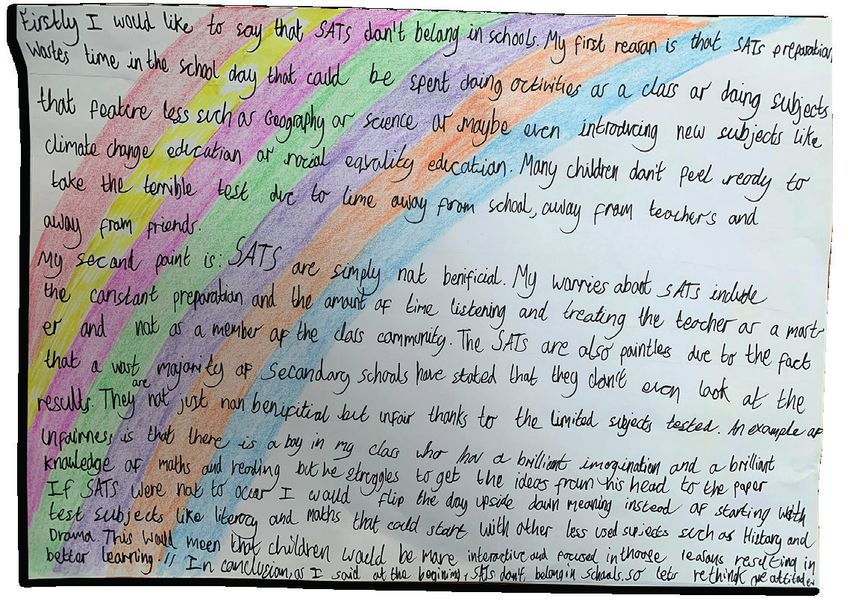 Firstly I would like to say that SATs don't belong in schools. My first reason is that SATs preparation
wastes time in the school day that could be spent doing activities as a class or doing subjects
that feature less such as Geography or science or maybe even introducing new subjects like
climate change education or racial equality education. Many children don't feel ready to
take the terrible test due to time away from school, away from teachers and
away from friends.
My second point is: SATS are simply not benificial. My worries about SATs include
the constant preparation and the amount of time listening and treating the teacher as a mast-
er and not as a member of the class community. The SATs are also pointless due to the fact
that a vast majority of Secondary schools have stated that they don't even look at the
results. They are not just non benifitial but unfair thanks to the limited subjects tested. An example of
unfairness is that there is a boy in my class who has a brilliant imagination and a brilliant
knowledge of maths and reading but he struggles to get the ideas from his head to the paper
If SATs were not to occur I would flip the day upside down meaning instead of starting with
test subjects like literacy and maths that could start with other less used subjects such as History and
Drama. This would meen that children would be more interactive and focused in those lessons resulting in
better learning!! In conclusion, as I said at the begining, SATs don't belong in schools. so lets rethink